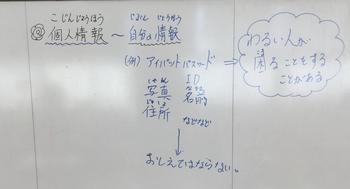 こじんじょうほう じぶんの じょうほう
② 個人情報 〜 自分の情報
(例) アイパットパスワード ⇒
しゃしん ID
写真 名前
じゅうしょ
住所 などなど
↓
おしえてはならない。
わるい人が
こま
困ることをする
ことがある